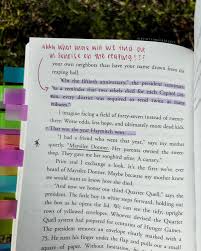 Ahhh what more will we find out
in Sunrise on the Reaping!!??
your own neighbors than have your name drawn from the
reaping ball.
"On the fiftieth anniversary," the president continues,
"as a reminder that two rebels died for each Capitol citizen,
every district was required to send twice as many
tributes."
I imagine facing a field of forty-seven instead of twenty-
three. Worse odds, less hope, and ultimately more dead kids.
That was the year Haymitch won.
"I had a friend who went that year," says my mother
quietly. "Maysilee Donner. Her parents owned the sweet-
shop. They gave me her songbird after. A canary."
Prim and I exchange a look. It's the first we've ever
heard of Maysilee Donner. Maybe because my mother knew
we would want to know how she died.
"And now we honor our third Quarter Quell," says the
president. The little boy in white steps forward, holding out
the box as he lifts the lid. We can see the tidy, upright
rows of yellowed envelopes. Whoever devised the Quarter
Quell system had prepared for centuries of Hunger Games.
The president removes an envelope clearly marked with a
75. He runs his finger under the flap and pulls out a small
square of paper. Without hesitation,